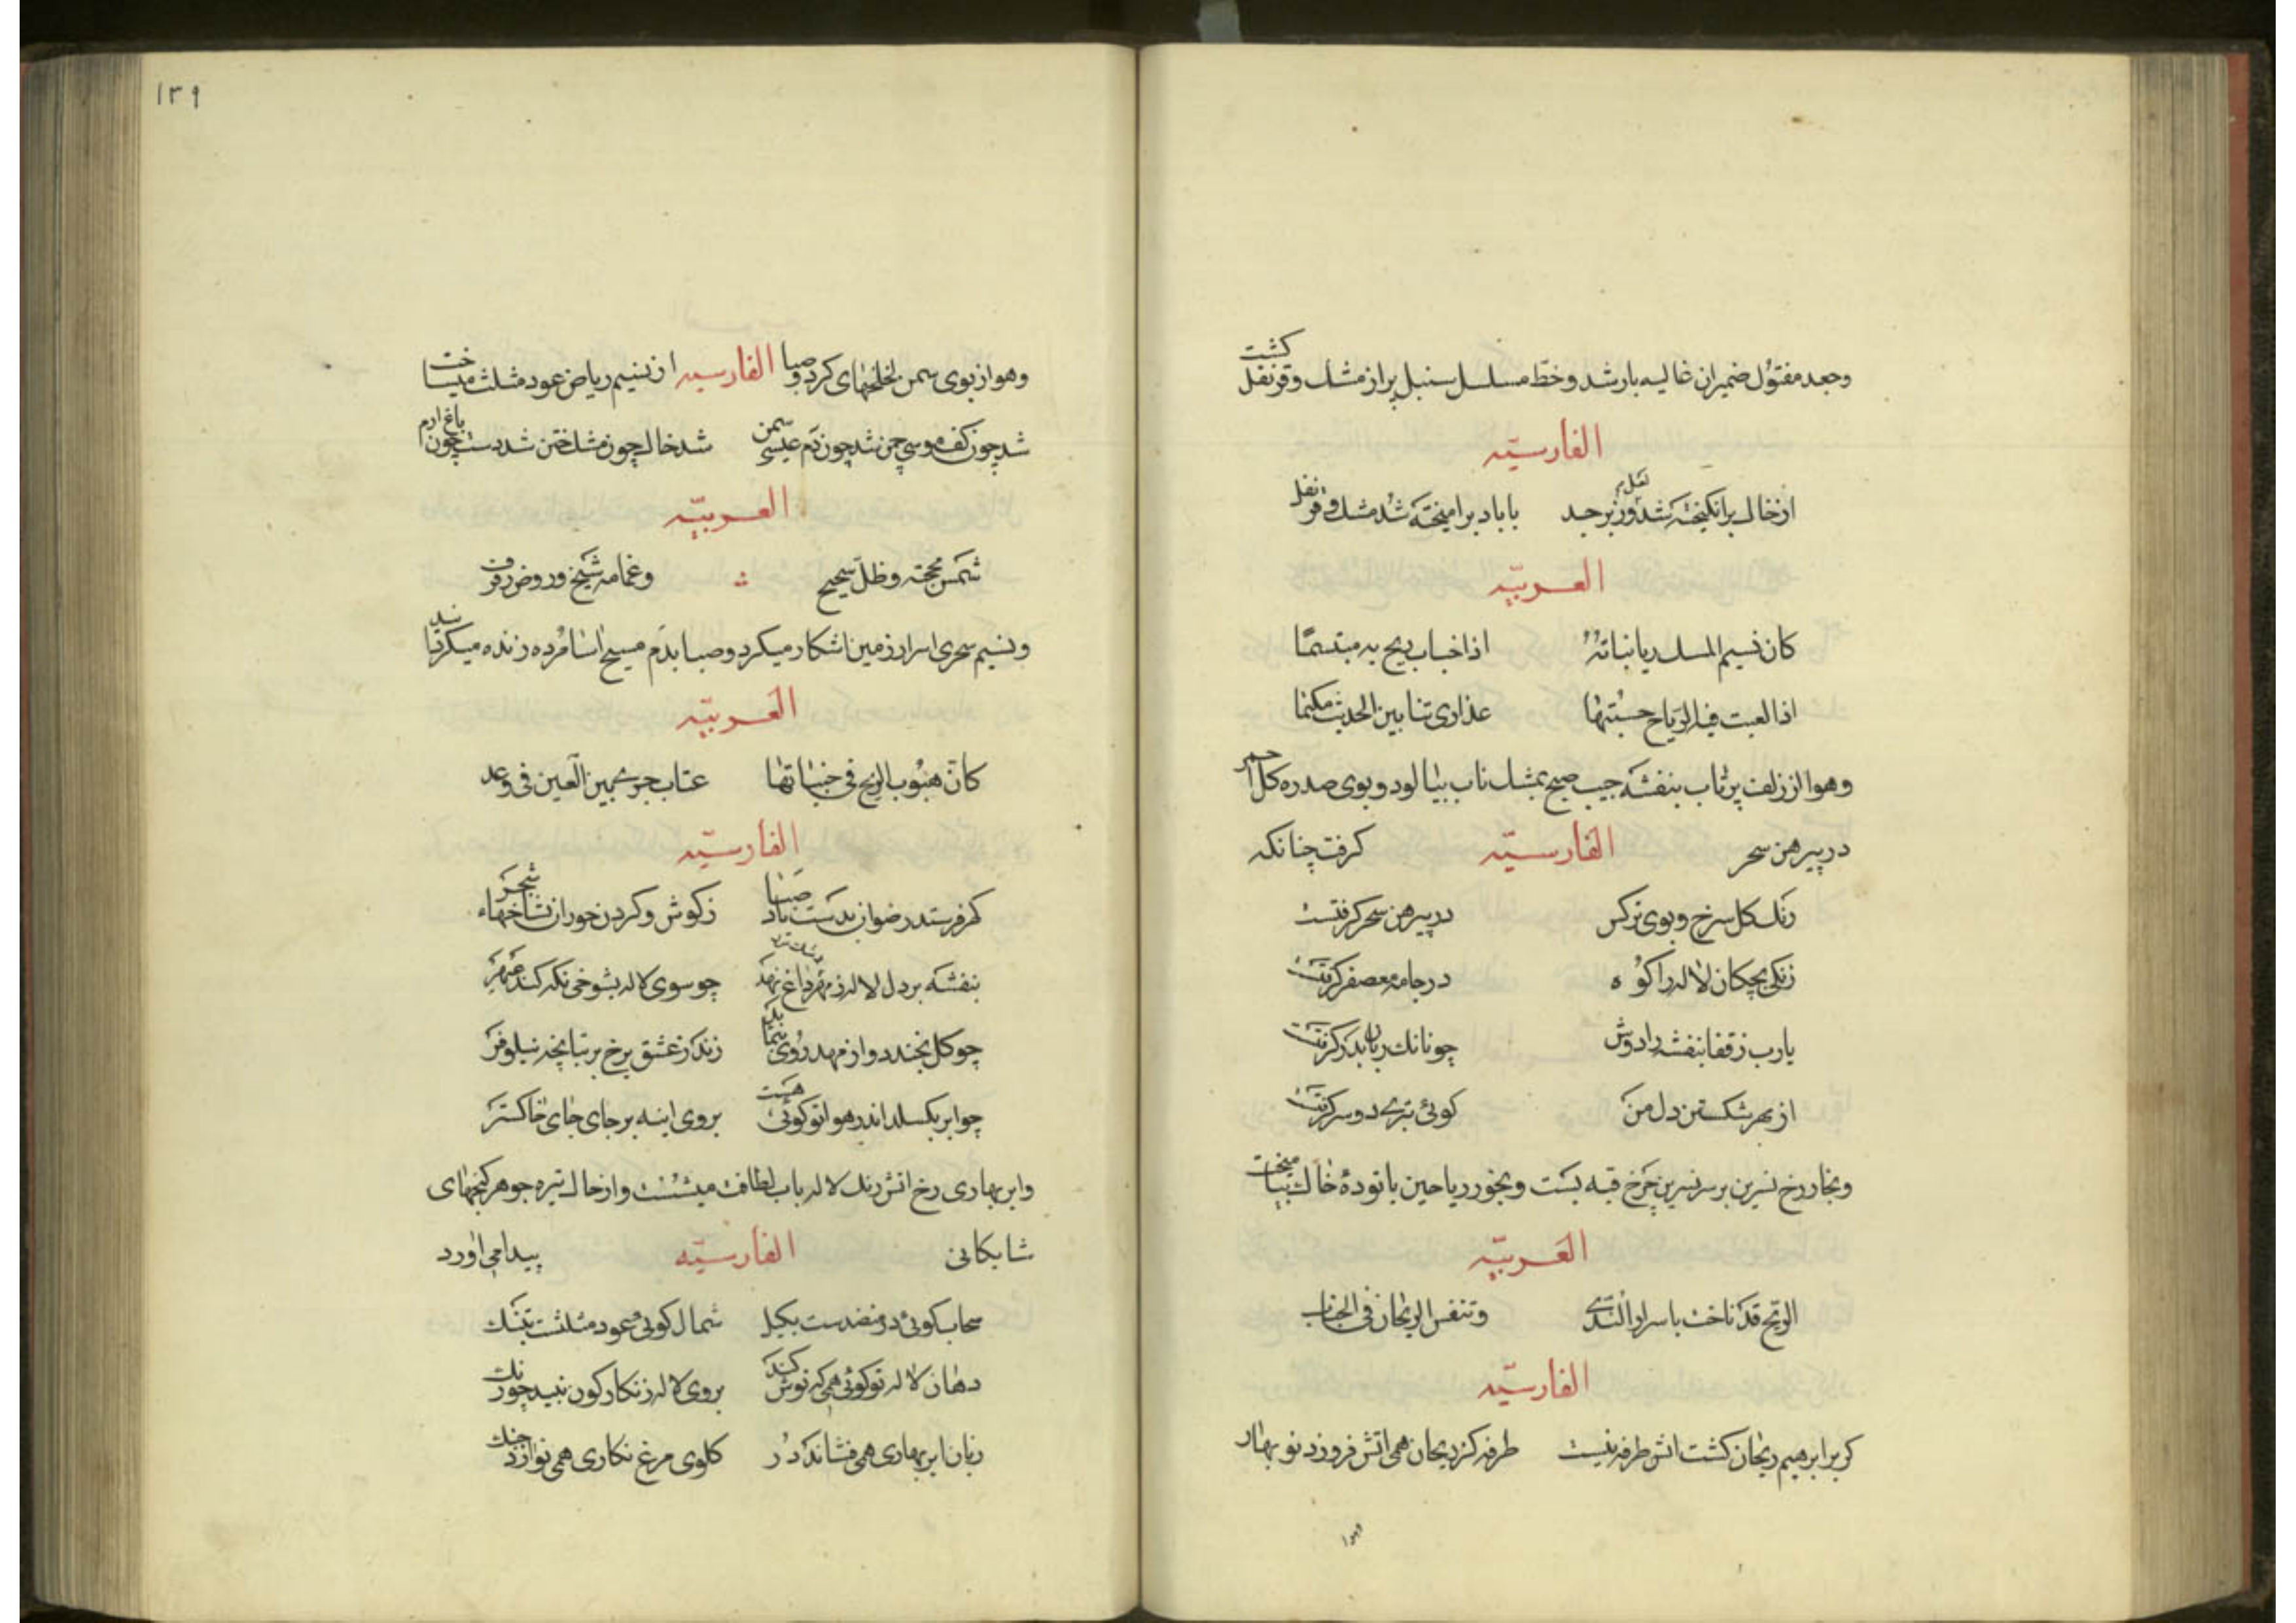 وجعد مفتول ضمیران غالیه بار شد وخط مسلسل سنبل پر از مشک وقرنفل کشت
الفارسیّه
از خاک برانکیخته شد وزبرجد باباد برامیخته شد مشک وقرنفل
العربیّه
کان نسیم المسک ریا نباته اذا خباب ریح به مبتسما
اذا لعبت فیه الریاح حسبتها عذاری تنا بین الحدیث مکتما
وهوا از زلف پرتاب بنفشه جیب صبح بمشک ناب بیالود وبوی صدره کل احمر
در پیرهن سحر الفارسیّه کرفت چنانکه
رنک کل سرخ وبوی نرکس در پیرهن سحر کرفتست
زنکی بچکان لاله را کوه در جامه معصفر کرفتست
یارب ز قفا بنفشه را دوش چونانک زبان بدر کرفتست
از بهر شکستن دل من کوئی تبری دو سر کرفتست
وبخار رخ نسرین بر سر نسرین چرخ قبه بست وبخور ریاحین با توده خاک بیامیخت
العربیّه
الریح قد ناخت باسرار الندی وتنفس الریحان فی الجناب
الفارسیّه
کر بر ابرهیم ریحان کشت اتش طرفه نیست طرفه کز ریحان همی اتش فروزد نو بهار
وهوا
۱۳۹
وهوا از بوی سمن لخلخهای کرد وصبا الفارسیه از نسیم ریاض عود مثلث میساخت
شد چون کف موسی چمن شد چون دم عیسی سمن شد خاک چون مشک ختن شد دست چون باغ ارم
العربیّه
شمس محجته وظل سجیح وغمامه شیخ وروض رفرف
ونسیم سحری اسرار زمین اشکار میکرد وصبا بدم مسیح اسا مرده زنده میکردانید
العربیّه
کان هبوب الریح فی جنباتها عتاب جری بین العین فی وعد
الفارسیّه
کهر فرستد رضوان بدست باد صبا ز کوش وکردن حور از شاخهاء شجر
بنفشه بر دل لاله ز مهر داغ نهد چو سوی لاله بشوخی نکه کند عبهر
چو کل بخندد واز مهد روی بنماید زند ز عشق برخ بر تبانچه نیلوفر
چو ابر بکسلد اندر هوا تو کوئی هست بروی اینه بر جای جای خاکستر
وابر بهاری رخ اتش رنک لاله باب لطافت میشست واز خاک تیره جوهر کنجهای
شایکانی الفارسیّه پیدا می اورد
سحاب کوئی در منضدست بکیل شمال کوئی عود مثلثست بتنک
دهان لاله تو کوئی همی که نوش کند بروی لاله زنکارکون نبید چو رنک
زبان ابر بهاری همی فشاند در کلوی مرغ نکاری همی نوازد چنک